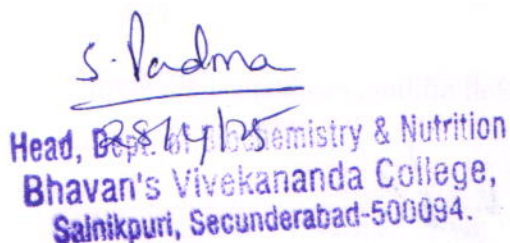 S. Padma
28/4/25
Head, Dept. of Biochemistry & Nutrition
Bhavan's Vivekananda College,
Sainikpuri, Secunderabad-500094.